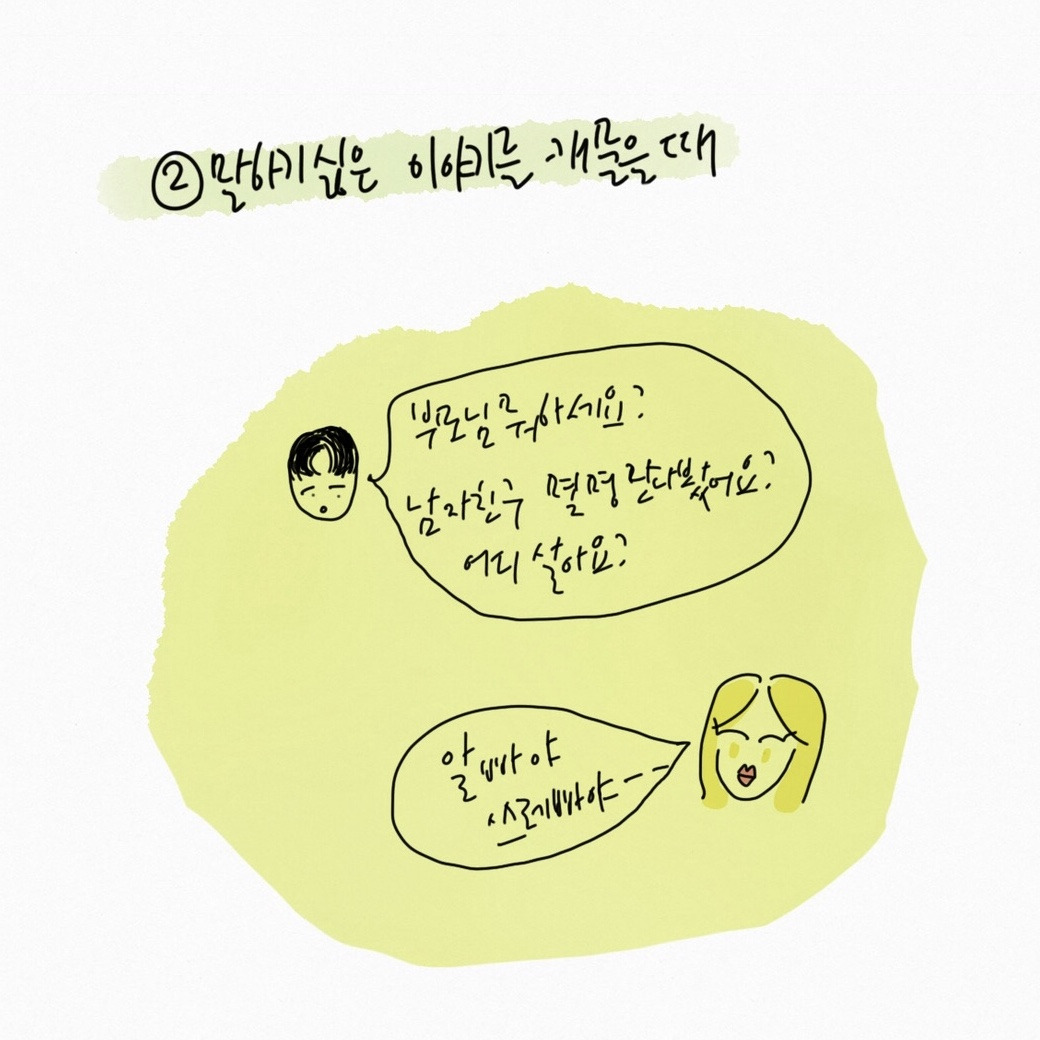 ② 말하기싫은 이야기를 캐물을 때
부모님 뭐하세요?
남자친구 몇명 만나봤어요?
어디 살아요?
알빠야
쓰레빠야---